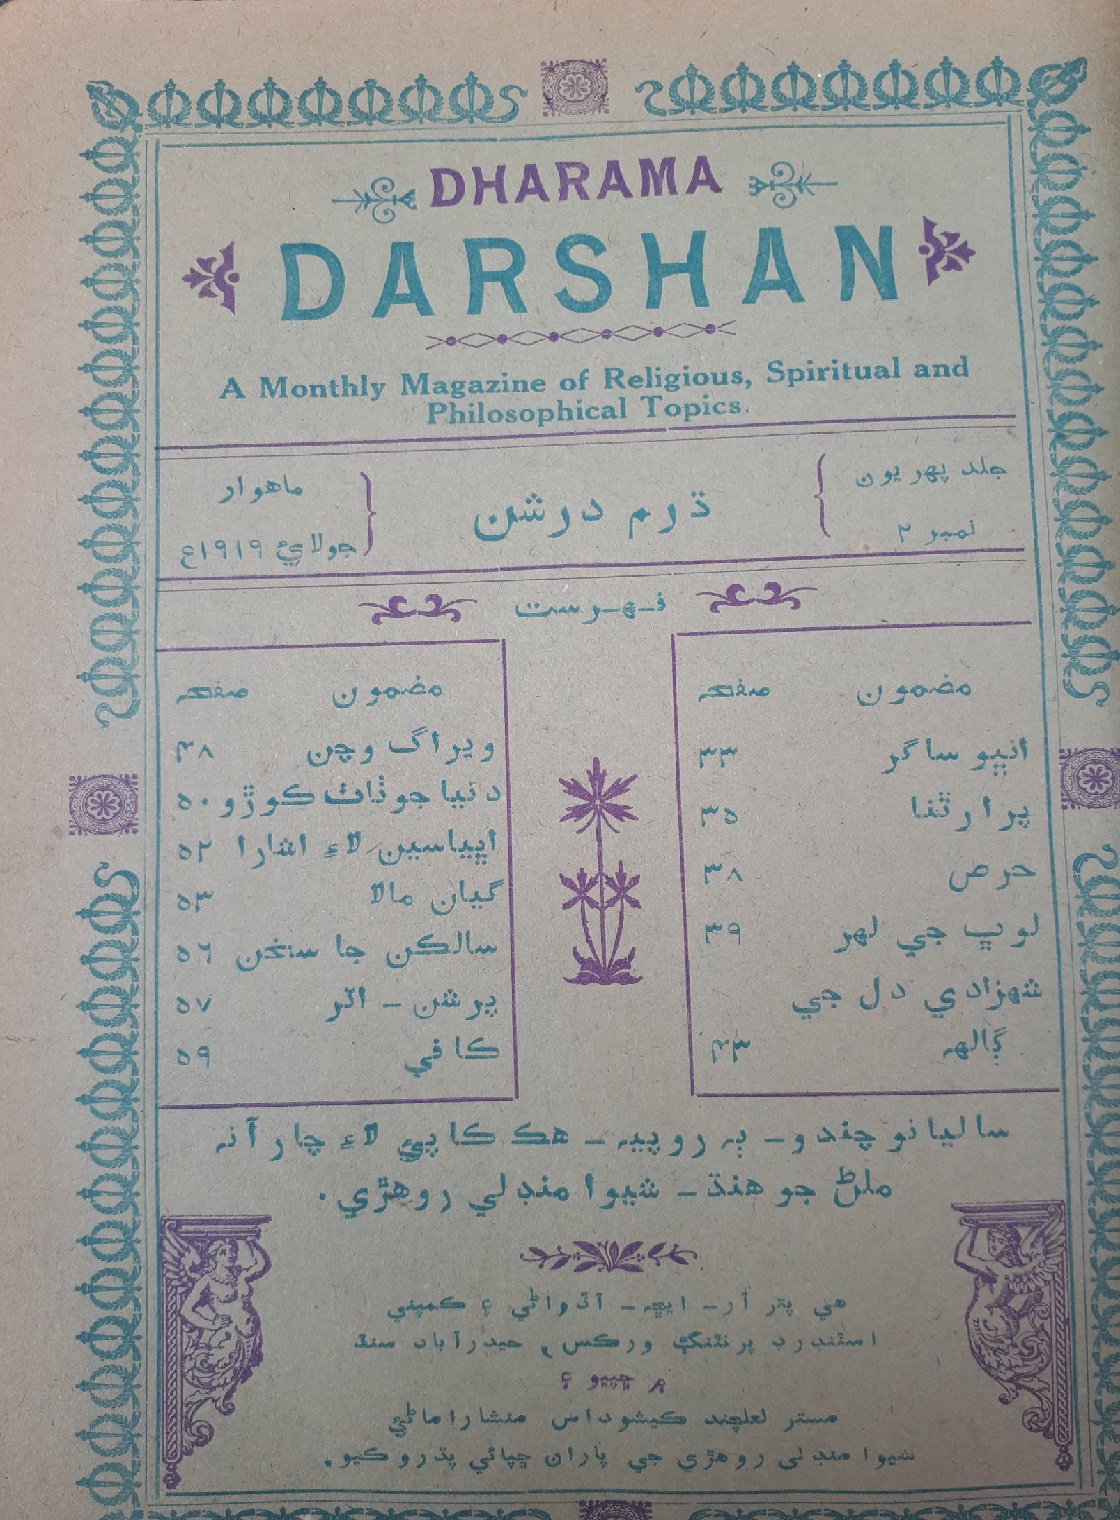 DHARAMA
DARSHAN
A Monthly Magazine of Religious, Spiritual and
Philosophical Topics.
جلد پهريون
نمبر ٢
ڌرم درشن
ماهوار
جولاءِ ١٩١٩ع
فهرست
مضمون صفحہ
انڀو ساگر ٣٣
پرارٿنا ٣٥
حرص ٣٨
لوڀ جي لهر ٣٩
شهزادي دل جي
ڳالهہ ٤٣
مضمون صفحہ
ويراگ وچن ٤٨
دنيا جو ناٽ ڪوڙو ٥٠
اڀياسين لاءِ اشارا ٥٢
گيان مالا ٥٣
سالڪن جا سخن ٥٦
پرشن - اتر ٥٧
ڪافي ٥٩
ساليانو چندو - ٻہ روپيہ - هڪ ڪاپي لاءِ چار آنہ
ملڻ جو هنڌ - شيوا منڊلي روهڙي.
هي پتر آر - ايڇہ - آڏواڻي ۽ ڪمپني
اسٽنڊرڊ پرنٽنگ ورڪس، حيدرآباد سنڌ
۾ ڇپيو ۽
مسٽر لعلچند ڪيشوداس منشاراماڻي
شيوا منڊلي روهڙي جي پاران ڇپائي پڌرو ڪيو.